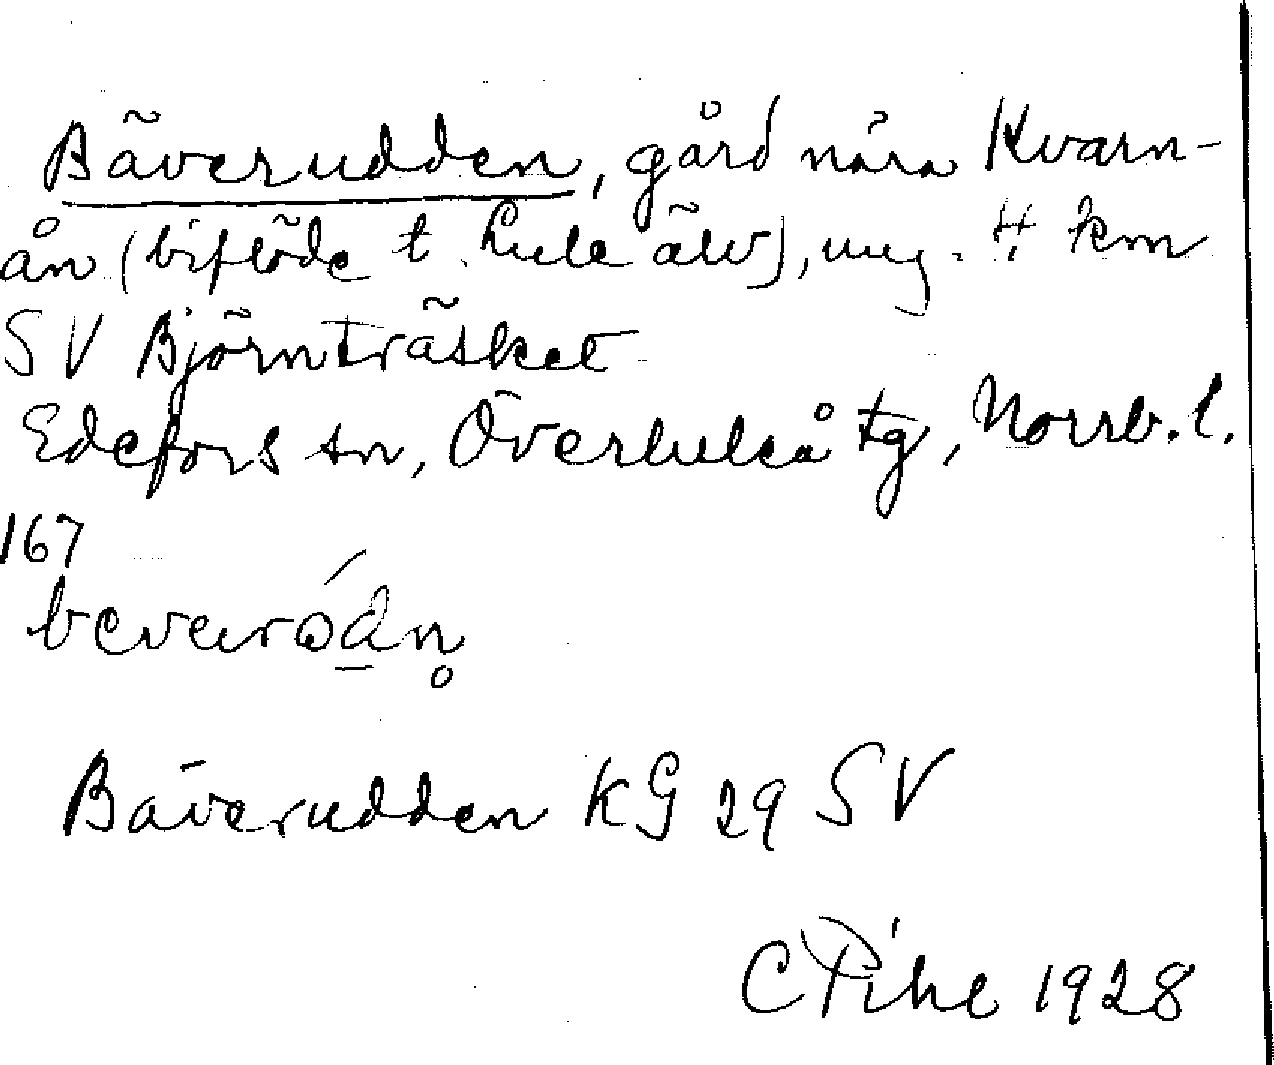 Bäverudden, gård nära Kvarn-
ån (biflöde t. Lule älv), ung. 4 km
SV Björnträsket
Edefors sn, Överluleå tg, Norrb. l.
167
Bäverudden KG 29 SV
C Pihl 1928